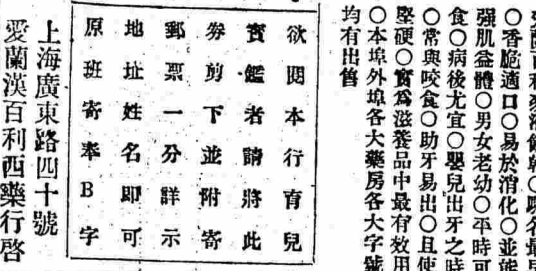 ○香脆適口○易於消化○並能
强肌益體○男女老幼○平時可
食○病後尤宜○嬰兒出牙之時
○常與咬食○助牙易出○且使
堅硬○實爲滋養品中最有效用
○本埠外埠各大藥房各大字號
均有出售
欲閱本行育兒
寶鑑者請將此
券剪下並附寄
郵票一分詳示
地址姓名即可
原班寄奉B字
上海廣東路四十號
愛蘭漢百利西藥行啓